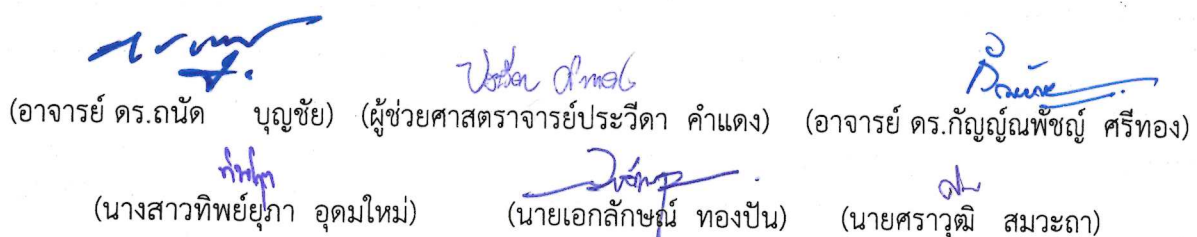 (อาจารย์ ดร.ถนัด บุญชัย) (ผู้ช่วยศาสตราจารย์ประวีดา คำแดง) (อาจารย์ ดร.กัญญ์ณพัชญ์ ศรีทอง)
(นางสาวทิพย์ยุภา อุดมใหม่) (นายเอกลักษณ์ ทองปัน) (นายศราวุฒิ สมวะถา)